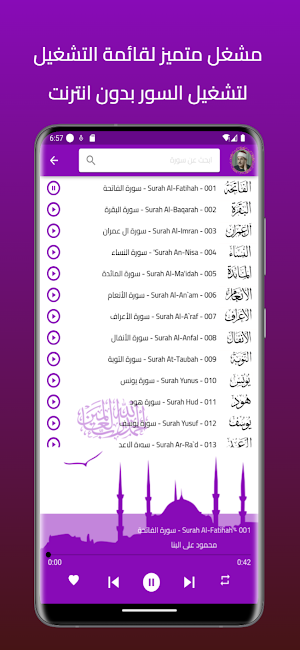 مشغل متميز لقائمة التشغيل
لتشغيل السور بدون انترنت
6:57
ابحث عن سورة
001 - Surah Al-Fatihah - سورة الفاتحة الفَاتِحَة
002 - Surah Al-Baqarah - سورة البقرة البَقَرَة
003 - Surah Al-Imran - سورة آل عمران آل عِمران
004 - Surah An-Nisa' - سورة النساء النِّسَاء
005 - Surah Al-Ma'idah - سورة المائدة المَائدة
006 - Surah Al-An`am - سورة الأنعام الأنعَام
007 - Surah Al-A`raf - سورة الأعراف الأعراف
008 - Surah Al-Anfal - سورة الأنفال الأنفَال
009 - Surah At-Taubah - سورة التوبة التوبَة
010 - Surah Yunus - سورة يونس يُونس
011 - Surah Hud - سورة هود هُود
012 - Surah Yusuf - سورة يوسف يُوسُف
013 - Surah Ar-Ra`d - سورة الرعد الرَّعد
001 - Surah Al-Fatihah - سورة الفاتحة
محمود على البنا
0:00 0:42